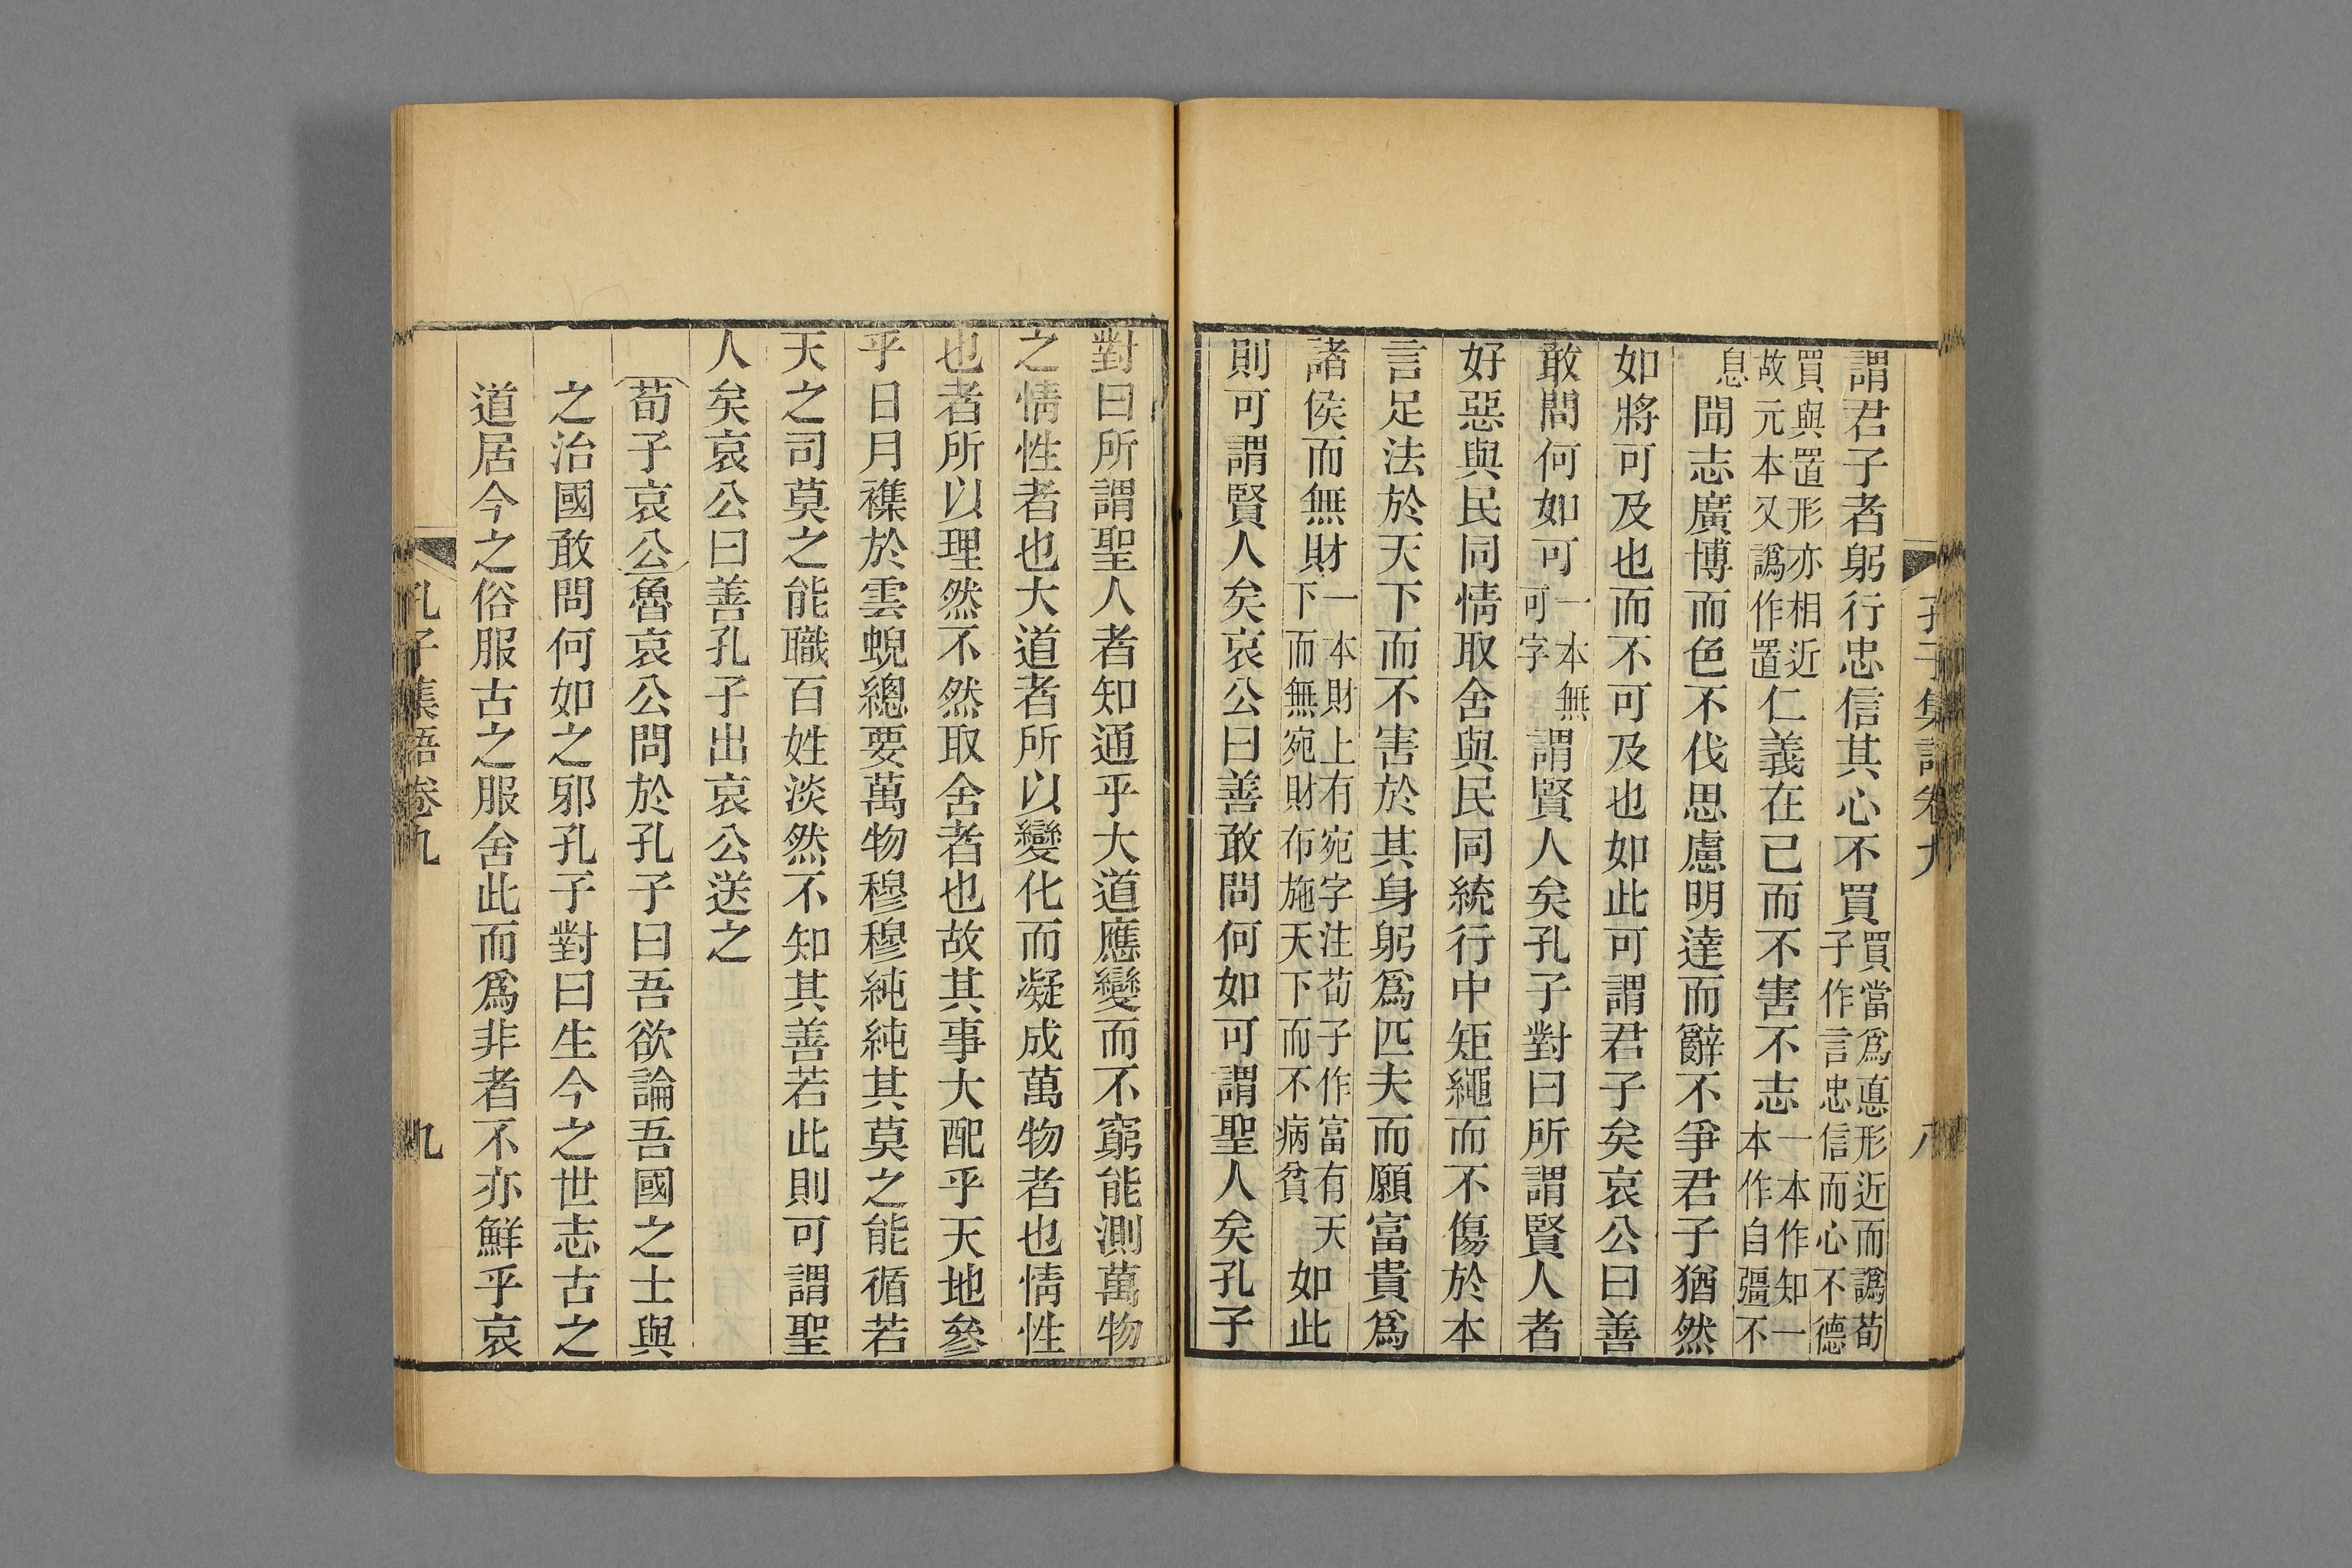 孔子集語卷九 八
謂君子者躬行忠信其心不買買當爲悳形近而譌荀子作言忠信而心不德
買與置形亦相近故元本又譌作置仁義在己而不害不志一本作知一本作自彊不
息聞志廣博而色不伐思慮明達而辭不爭君子猶然
如將可及也而不可及也如此可謂君子矣哀公曰善
敢問何如可一本無可字謂賢人矣孔子對曰所謂賢人者
好惡與民同情取舍與民同統行中矩繩而不傷於本
言足法於天下而不害於其身躬爲匹夫而願富貴爲
諸侯而無財一本財上有宛字注荀子作富有天下而無宛財布施天下而不病貧如此
則可謂賢人矣哀公曰善敢問何如可謂聖人矣孔子
對曰所謂聖人者知通乎大道應變而不窮能測萬物
之情性者也大道者所以變化而凝成萬物者也情性
也者所以理然不然取舍者也故其事大配乎天地參
乎日月襍於雲蜺總要萬物穆穆純純其莫之能循若
天之司莫之能職百姓淡然不知其善若此則可謂聖
人矣哀公曰善孔子出哀公送之
荀子哀公魯哀公問於孔子曰吾欲論吾國之士與
之治國敢問何如之邪孔子對曰生今之世志古之
道居今之俗服古之服舍此而爲非者不亦鮮乎哀
孔子集語卷九 九